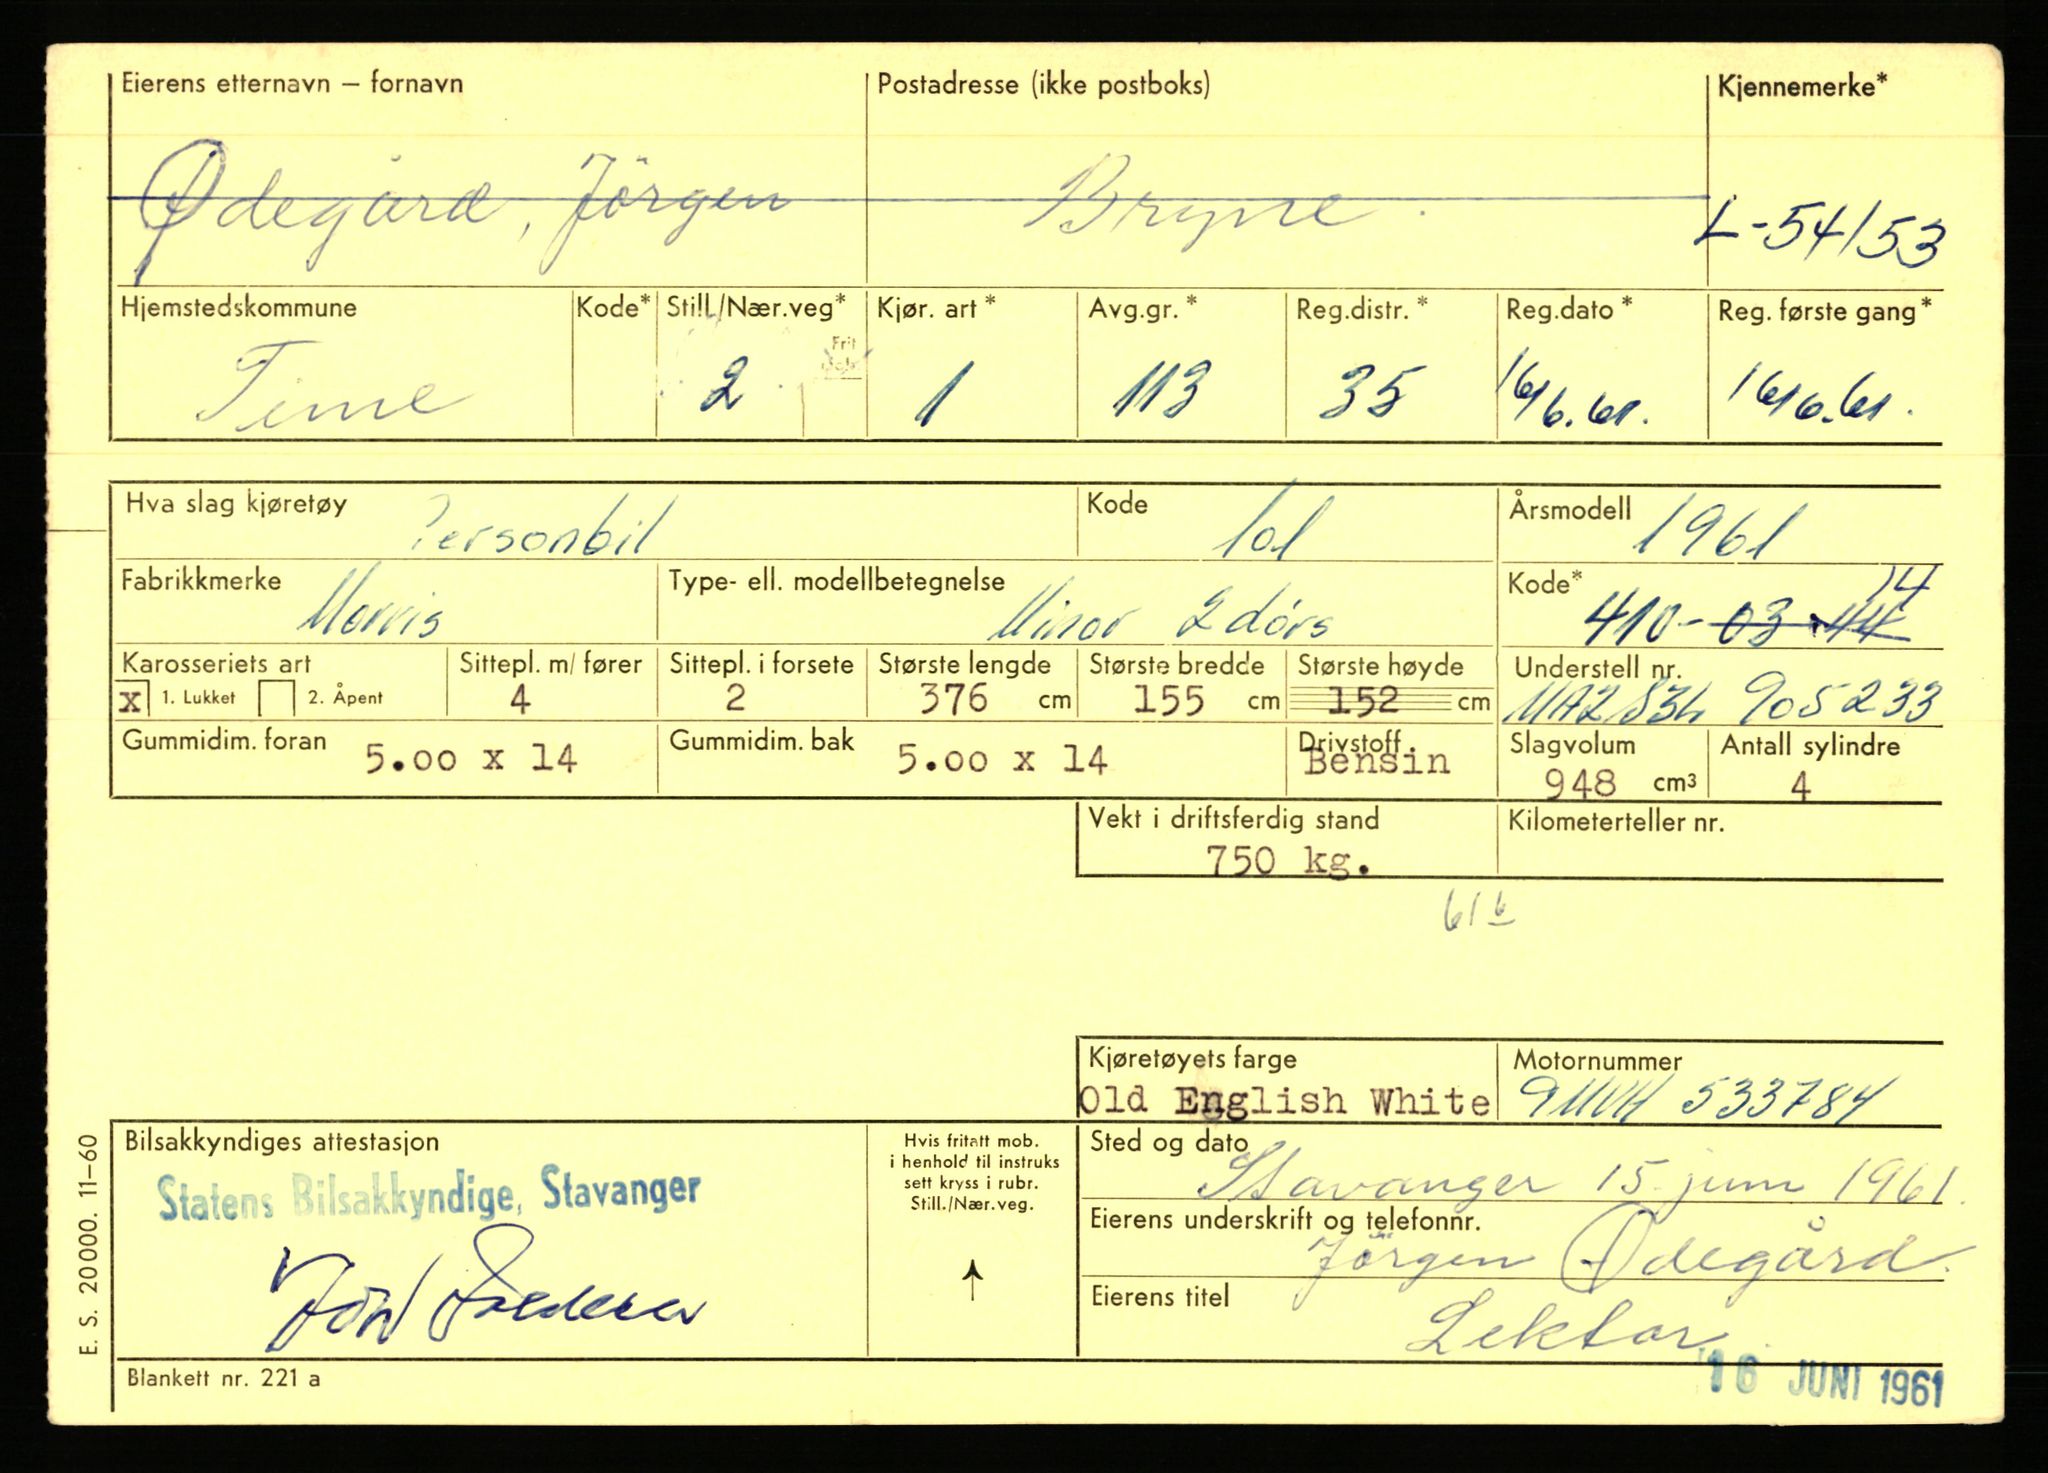 Eierens etternavn – fornavn Postadresse (ikke postboks) Kjennemerke*
Ødegård, Jörgen Bryne. L-54153
Hjemstedskommune Kode* Still./Nær.veg* Kjør. art* Avg.gr.* Reg.distr.* Reg.dato* Reg. første gang*
Frit
Time 2 1 113 35 16/6.61. 16/6.61.
Hva slag kjøretøy Personbil Kode 101 Årsmodell 1961
Fabrikkmerke Morris Type- ell. modellbetegnelse Minor 2 dørs Kode* 410-03-44 14
Karosseriets art Sittepl. m/ fører Sittepl. i forsete Største lengde Største bredde Største høyde Understell nr.
x 1. Lukket 2. Åpent 4 2 376 cm 155 cm 152 cm MA2S3L 905233
Gummidim. foran 5.00 x 14 Gummidim. bak 5.00 x 14 Drivstoff Bensin Slagvolum 948 cm³ Antall sylindre 4
Vekt i driftsferdig stand Kilometerteller nr.
750 kg.
61 6
Kjøretøyets farge Motornummer
Old English White 9MUH 533784
Bilsakkyndiges attestasjon Hvis fritatt mob. i henhold til instruks sett kryss i rubr. Still./Nær.veg. Sted og dato
Statens Bilsakkyndige, Stavanger Stavanger 15. juni 1961.
Eierens underskrift og telefonnr.
Jörgen Ødegård.
Eierens titel
Lektor.
Blankett nr. 221 a 16 JUNI 1961
E. S. 20000. 11–60